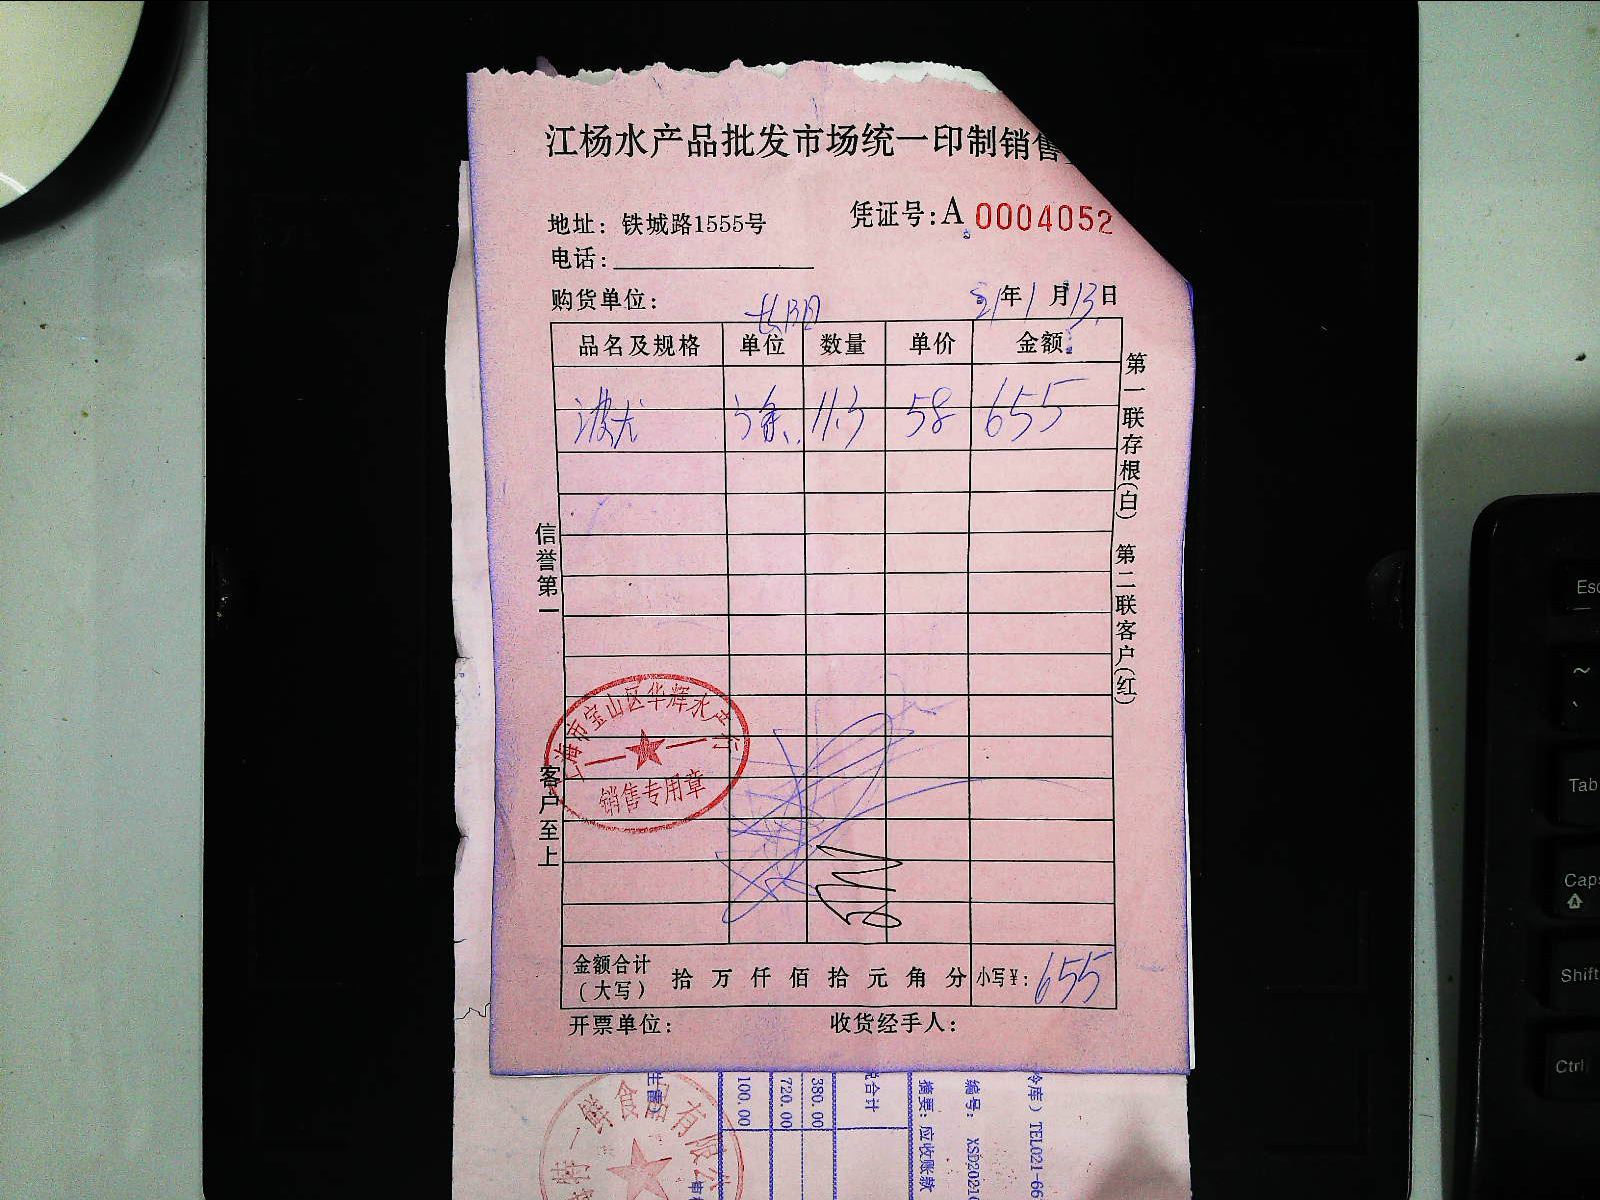 江杨水产品批发市场统一印制销售
地址：铁城路1555号
凭证号:A 0004052
电话：
购货单位：
21年1月13日
品名及规格 单位 数量 单价 金额
波龙 11.3 58 655
金额合计（大写） 拾 万 仟 佰 拾 元 角 分 小写¥：655
开票单位： 收货经手人：
信誉第一
客户至上
第一联存根(白) 第二联客户(红)
上海市宝山区华辉水产行
销售专用章
冷库）TEL021-66
编号： XSD2021
摘要：应收账款
税合计
380.00
720.00
100.00
一鲜食品有限公
Esc
~
Tab
Caps
Shift
Ctrl